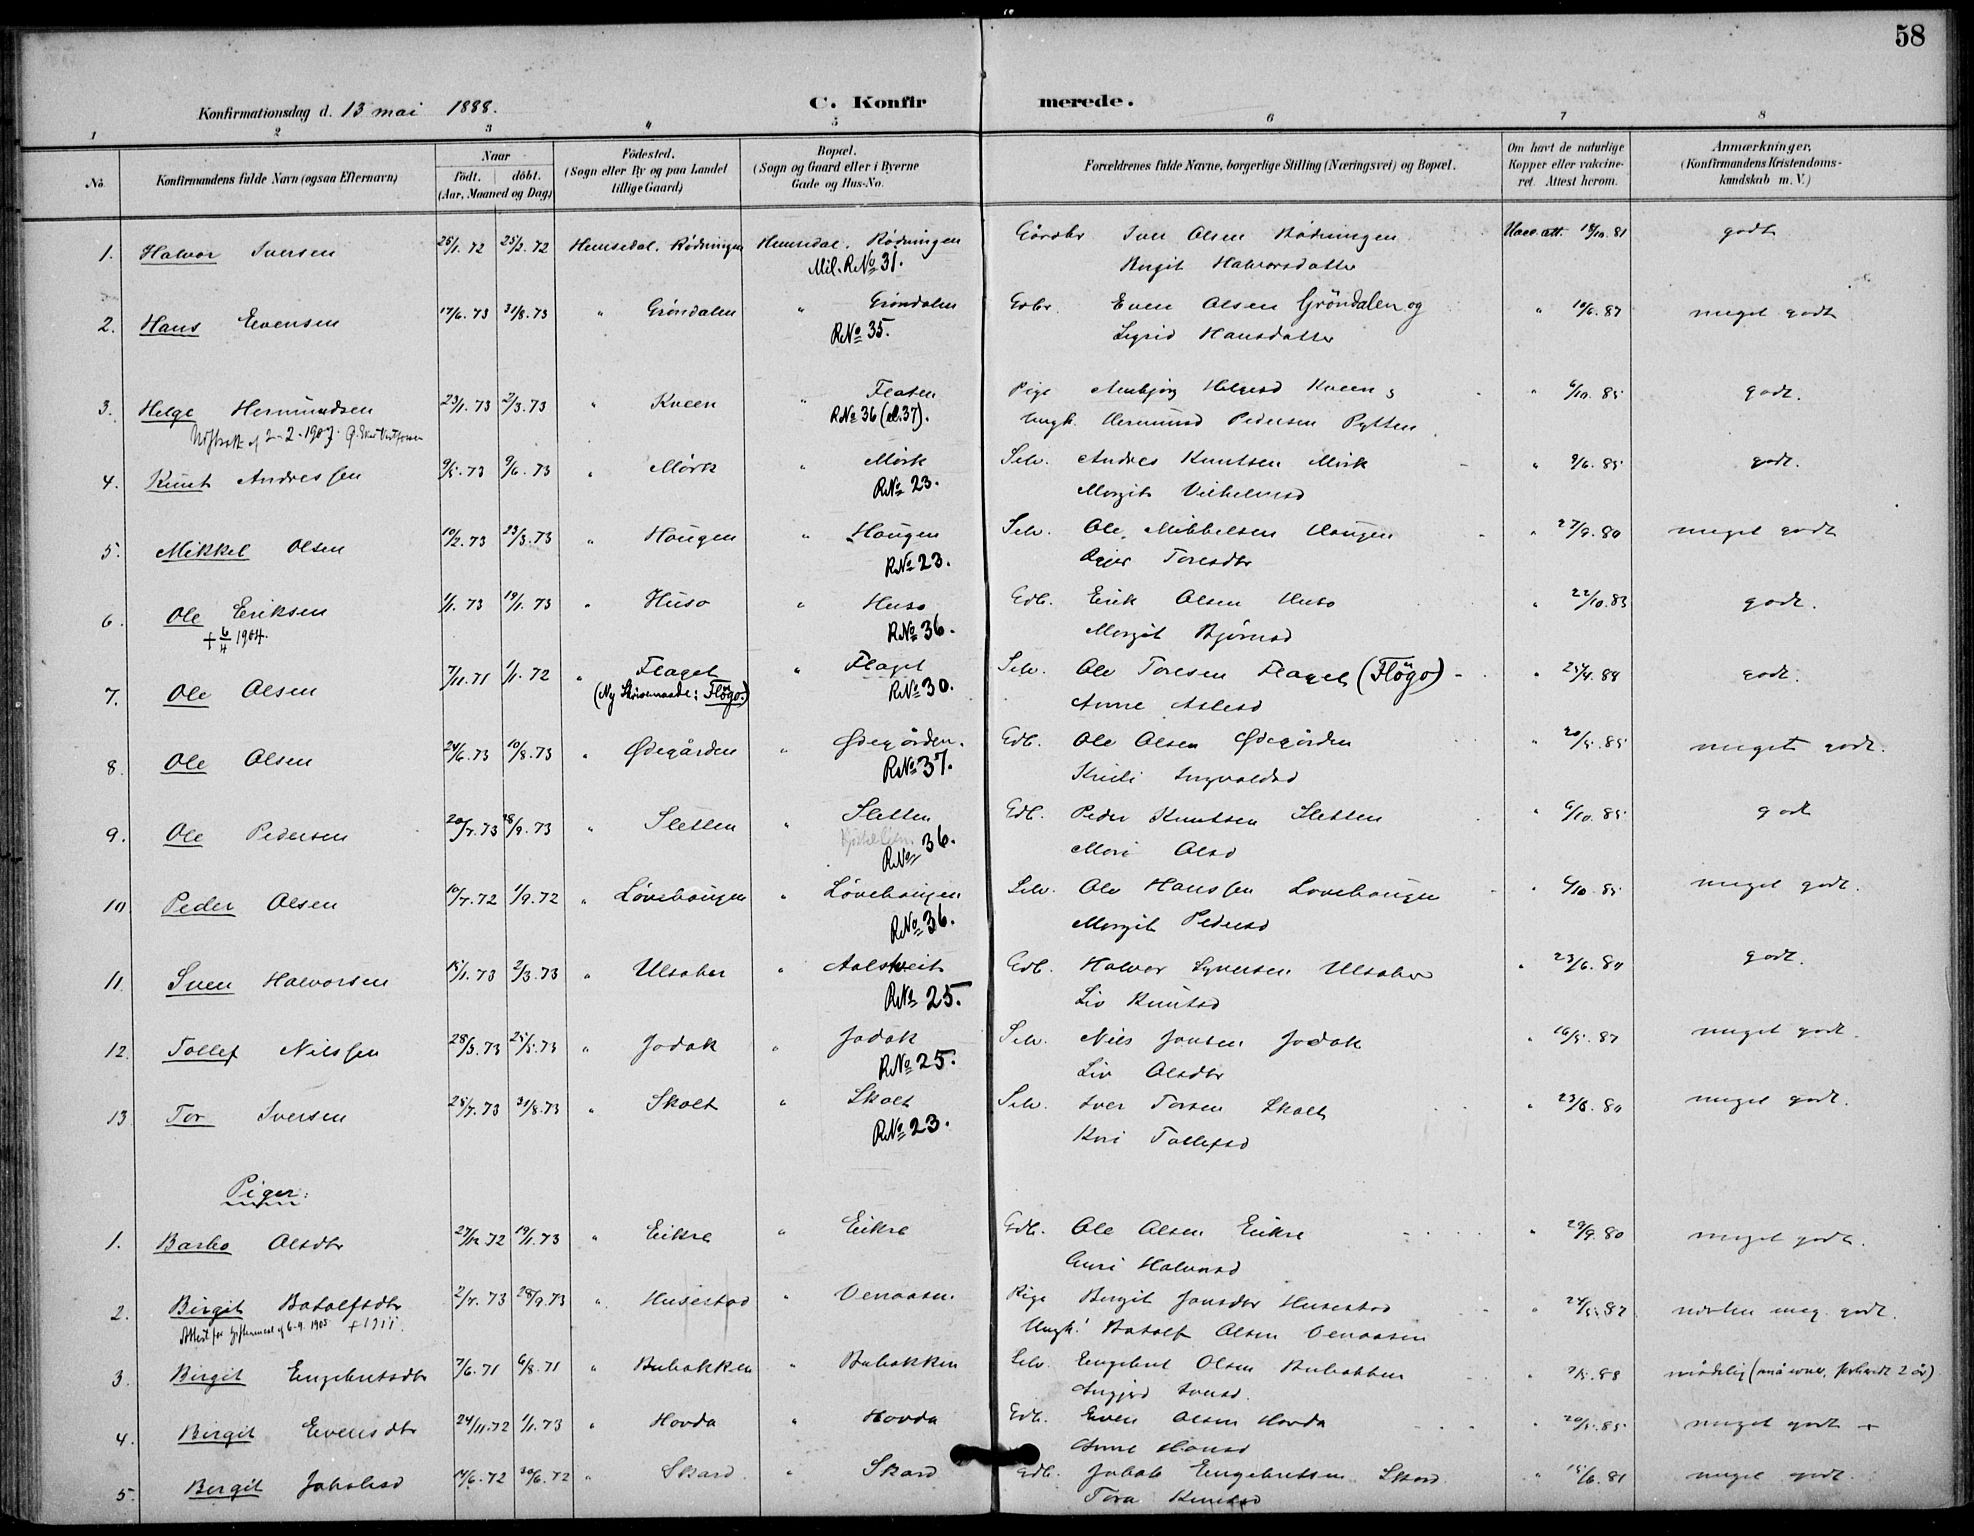 58
Konfirmationsdag d. 13 mai 1888.
C. Konfirmerede.
1 2 3 4 5 6 7 8
No.
Konfirmandens fulde Navn (ogsaa Efternavn)
Naar
født. døbt.
(Aar, Maaned og Dag)
Fødested.
(Sogn eller By og paa Landet
tillige Gaard)
Bopæl.
(Sogn og Gaard eller i Byerne
Gade og Hus-No.
Forældrenes fulde Navne, borgerlige Stilling (Næringsvei) og Bopæl.
Om havt de naturlige
Kopper eller vakcine-
ret. Attest herom.
Anmærkninger,
(Konfirmandens Kristendoms-
kundskab m. V.)
1. Halvor Iversen 25/1. 72 25/2. 72 Hemsedal. Rødningen Hemsedal. Rødningen Gårdbr Iver Olsen Rødningen Vacc. att. 18/10. 81 godt
Mil. RNo 31. Birgit Halvorsdatter
2. Hans Evensen 17/6. 73 31/8. 73 " Grøndalen " Grøndalen Gdbr. Even Olsen Gröndalen og " 10/6. 87 meget godt
RNo 35. Sigrid Hansdatter
3. Helge Hermundsen 23/1. 73 2/3. 73 " Kveen " Flaten Pige Helgesd Kveen " 6/10. 85 godt.
2-2-1907. RNo 36 (al. 37). Ungk. Hermund Pedersen Pytten
4. Knut Andressen 9/5. 73 9/6. 73 " Mørk " Mørk Selv. Andres Knutsen Mørk " 9/6. 85 godt.
RNo 23. Margit Vilhelmsd
5. Mikkel Olsen 10/2. 73 23/3. 73 " Haugen " Haugen Selv. Ole Mikkelsen Haugen " 27/9. 80 meget godt
RNo 23. Toresdtr
6. Ole Eriksen 1/1. 73 19/1. 73 " Huso " Huso Gdb. Erik Olsen Huso " 22/10. 83 godt.
+ 6/4 1904. RNo 36. Margit Bjørnsd
7. Ole Olsen 7/11. 71 1/1. 72 " Flaget " Flaget Selv. Ole Toresen Flaget (Flögo) " 25/4. 84 godt.
(Ny Skrivemaade: Flögo.) RNo 30. Anne Aslesd
8. Ole Olsen 24/6. 73 10/8. 73 " Ødegården " Ødegården. Gdb. Ole Olsen Ødegården " 20/5. 85 meget godt.
RNo 37. Ingvaldsd
9. Ole Pedersen 20/7. 73 28/9. 73 " Sletten " Sletten Gdb. Peder Knutsen Sletten " 6/10. 85 godt
RNo 36. Mari Olsd
10 Peder Olsen 10/7. 72 1/9. 72 " Løvehaugen " Løvehaugen Selv. Ole Hanssen Løvehaugen " 6/10 85 meget godt.
RNo 36. Margit Pedersd
11. Sven Halvorsen 15/1. 73 2/3. 73 " Ulsaker " Aalstveit Gdb. Halvor Syversen Ulsaker " 23/6. 80 godt.
RNo 25. Liv Knutsd
12. Tollef Nilssen 28/3. 73 25/5. 73 " Jodak " Jodak Selv. Nils Jonsen Jodak " 16/5. 87 meget godt.
RNo 25. Liv Olsdtr
13 Tor Iversen 25/7. 73 31/8. 73 " Skolt " Skolt Selv. Iver Torsen Skolt " 23/6. 80 meget godt.
RNo 23. Kari Tollefsd
Piger:
1. Barbo Olsdtr 27/12 72 19/1. 73 " Eikre " Eikre Gdb. Ole Olsen Eikre " 29/9. 80 meget godt.
Guri Halvorsd
2. Birgit Botolfsdtr 2/7. 73 28/9. 73 " Husestad " Venaasen Pige Birgit Jonsdtr Husestad " 24/5. 87 næsten meg. godt.
Attest 6-9. 1905 + 1911. Ungk. Botolf Olsen Venaasen
3. Birgit Engebretsdtr 7/6. 71 6/8. 71 " Bubakken " Bubakken Selv. Engebret Olsen Bubakken " 2/5. 88 mådelig (små evner, forberedt 2 år)
4. Birgit Evensdtr 24/11. 72 1/1. 73 " Hovda " Hovda Gdb. Even Olsen Hovda " 20/5. 85 meget godt +
Anne Hansd
5. Birgit Jakobsd 14/6. 72 30/6. 72 " Skard " Skard Gdb. Jakob Engebretsen Skard " 15/6. 81 meget godt.
Tora Knutsd